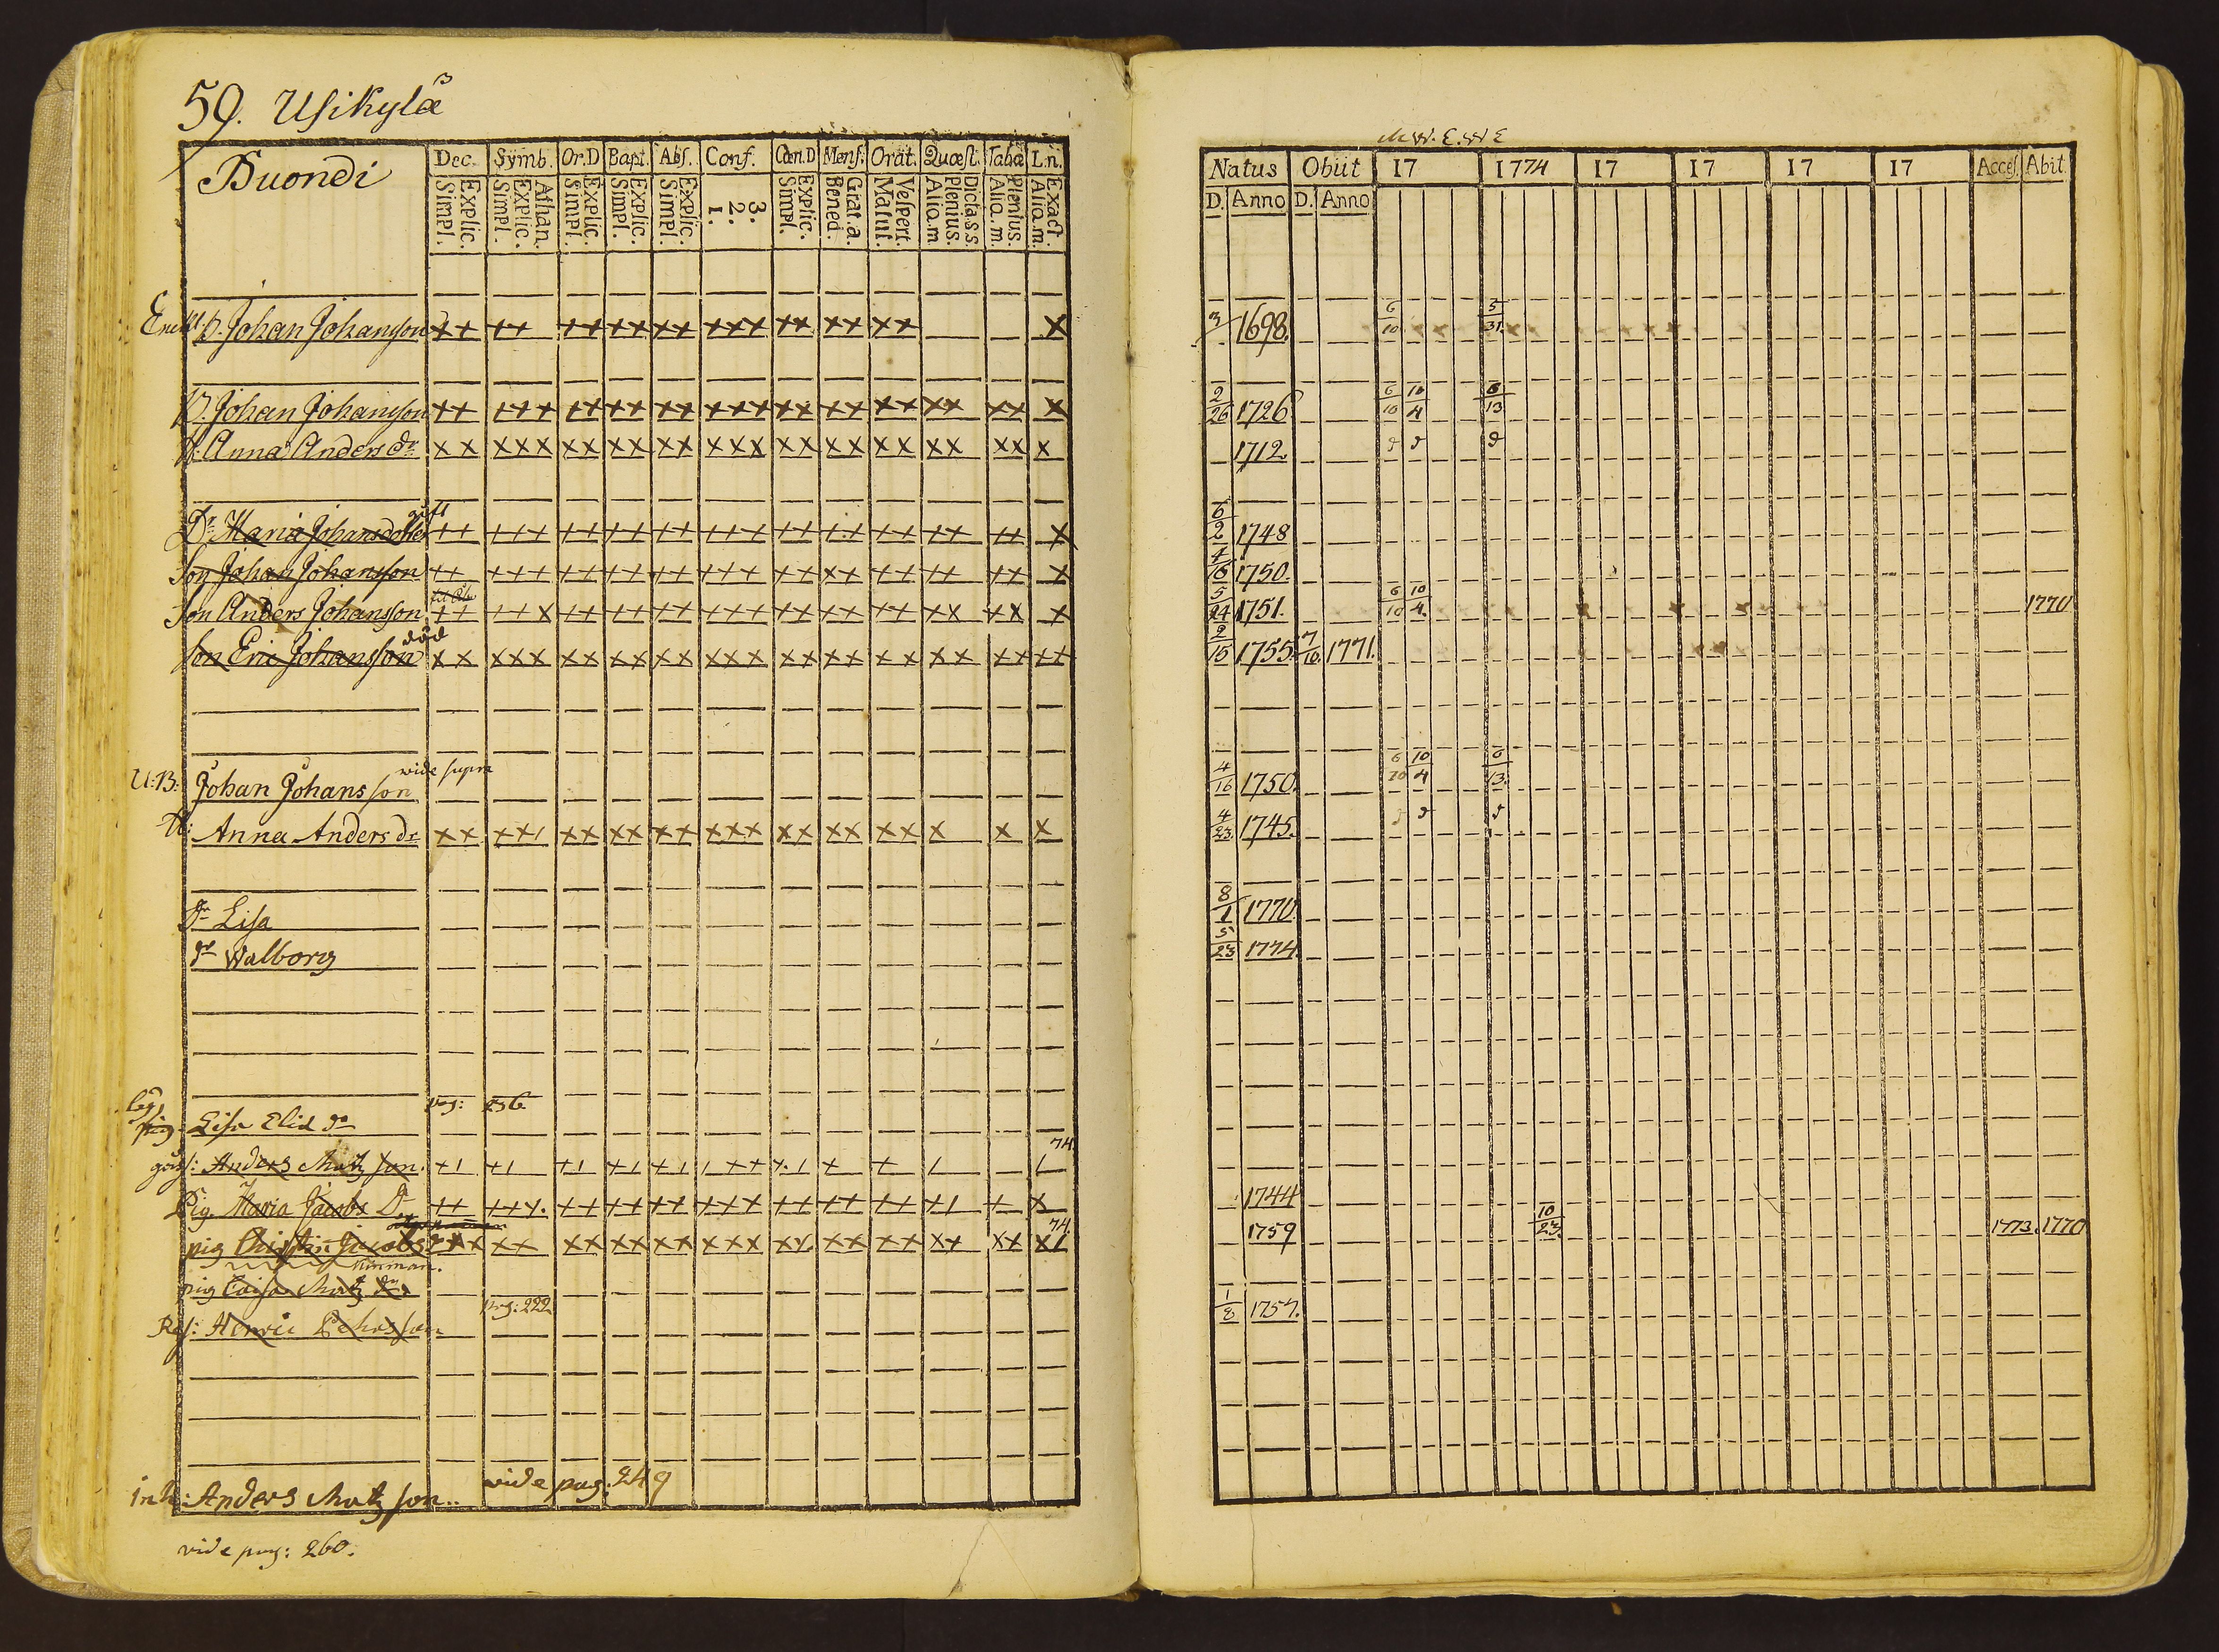 59. Usikylä
Buondi
Dec. Symb. Or.D Bapt. Abs. Conf. Cœn.D Mens. Orat. Quæst. Tabæ L.n.
Explic. Simpl. Athan. Explic. Simpl. Explic. Simpl. Explic. Simpl. Explic. Simpl. 3. 2. 1. Explic. Simpl. Grat.a. Bened. Vespert. Matut. Dicta.s.s. Plenius. Alio.m. Plenius. Aliq.m. Exact. Aliq.m.
M W. E. W E
Natus Obiit 17 1774 17 17 17 17 Acces. Abit.
D. Anno D. Anno
B. Johan Johansson ++ ++ ++ ++ ++ +++ ++ ++ ++ x 1698. 6/10 5/31.
B. Johan Johansson ++ +++ ++ ++ ++ +++ ++ ++ ++ ++ ++ x 2/26 1726 6/10 10/4 6/13
H: Anna Anders dr xx xxx xx xx xx xxx xx xx xx xx xx x 1712.
gift
Dr Maria Johansdotter ++ +++ ++ ++ ++ +++ ++ ++ ++ ++ ++ x 6/2 1748
Son Johan Johansson ++ +++ ++ ++ ++ +++ ++ ++ ++ ++ ++ x 4/16 1750.
Son Anders Johansson ++ ++x ++ ++ ++ +++ ++ ++ ++ ++ ++ x 5/24 1751. 6/10 10/4. 1770
död
Son Eric Johansson xx xxx xx xx xx xxx xx xx xx xx ++ ++ 9/15 1755. 7/10. 1771.
U:B: Johan Johansson wide supra 4/16 1750. 6/10 10/4 6/13.
H: Anna Anders dr xx +++ xx xx xx xxx xx xx xx x x x 4/23. 1745.
dr Lisa 8/1 1770.
dr Walborg 5/23 1774.
pag: 256
pig Lisa Elid dr
74.
Anders Matz son.
Pig. Maria Jacobs Dr ++ ++ ++ ++ +++ ++ ++ ++ x 1744
74.
pig Christin Jacobs dr xx xx xx xx xxx xx xx xx xx 1759 10/23. 1773. 1770
pig Caisa Matz dr
pag: 222
Henric Perhsson 1/8 1757.
inh: Anders Matz son.. vide pag: 249
vide pag: 260.